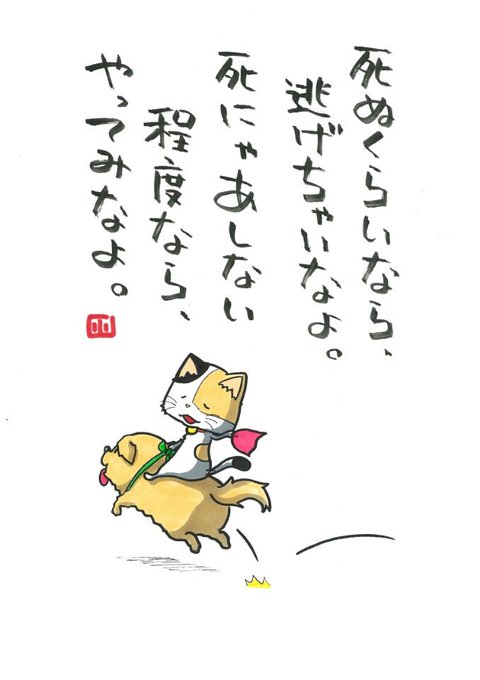 死ぬくらいなら、
逃げちゃいなよ。
死にゃあしない
程度なら、
やってみなよ。